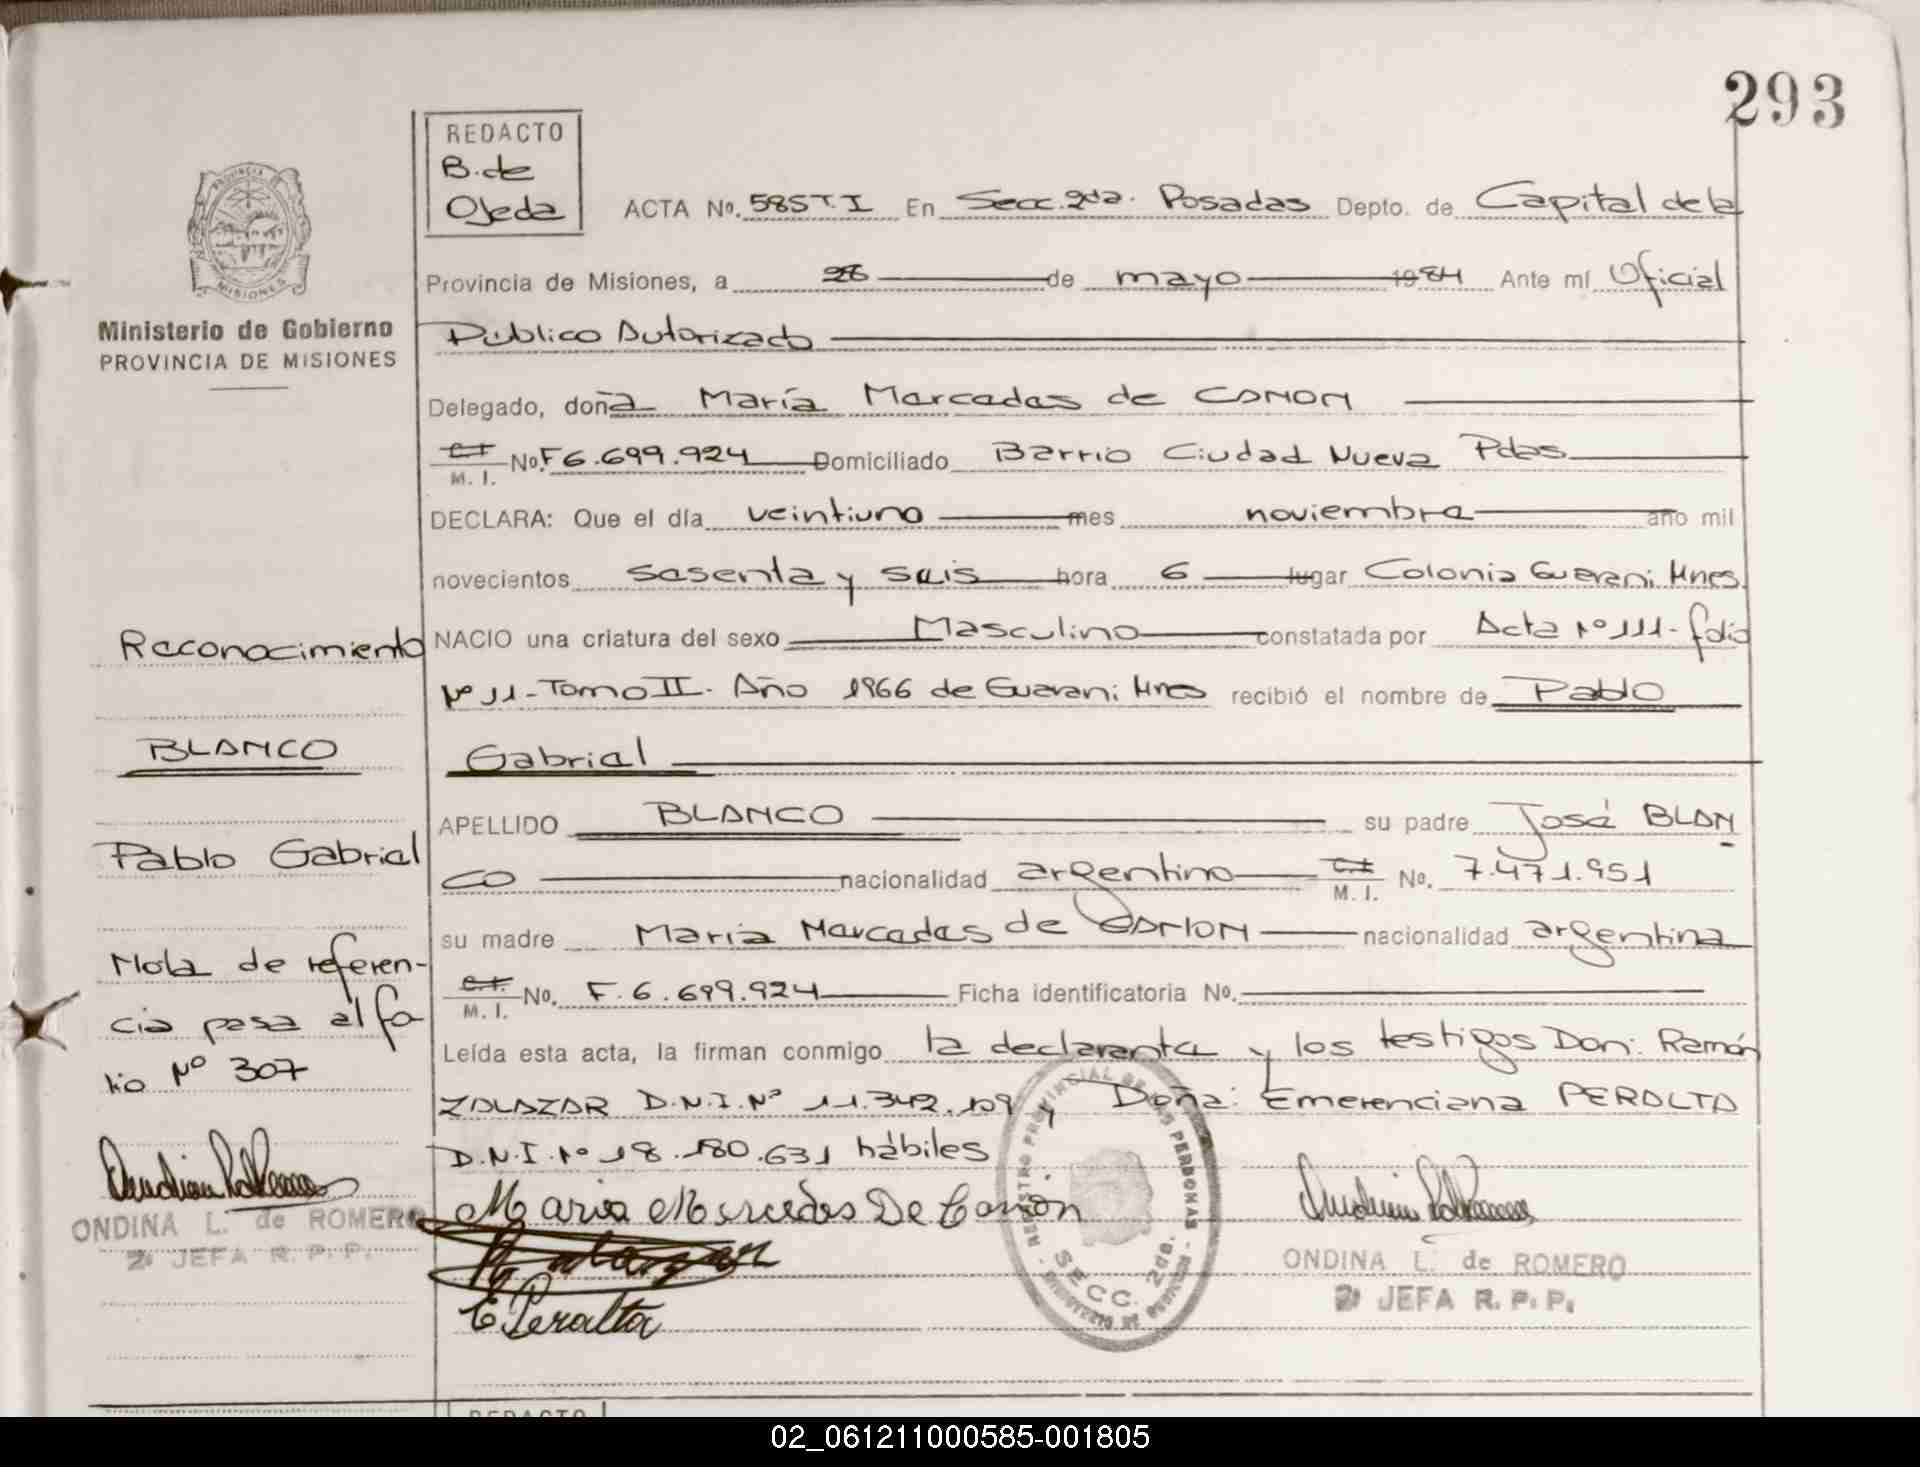 293
REDACTO
B. de
Ojeda
ACTA No. 585 T. I En Secc. 2da. Posadas Depto. de Capital de la
Provincia de Misiones, a 28 de mayo 1984 Ante mí Oficial
Público Autorizado
Delegado, doña María Mercedes de CANON
C.I. M. I. No. F 6.699.924 Domiciliado Barrio Ciudad Nueva Pdas
DECLARA: Que el día veintiuno mes noviembre año mil
novecientos sesenta y seis hora 6 lugar Colonia Guarani Mnes.
NACIO una criatura del sexo Masculino constatada por Acta Nº 111 - folio
Nº 11 - Tomo II. Año 1966 de Guarani Mnes recibió el nombre de Pablo
Gabriel
APELLIDO BLANCO su padre José BLAN
CO nacionalidad argentino C.I. M. I. No. 7.471.951
su madre María Mercedes de CANON nacionalidad argentina
C.I. M. I. No. F. 6.699.924 Ficha identificatoria No.
Leída esta acta, la firman conmigo la declarante y los testigos Don: Ramón
ZALAZAR D.N.I. Nº 11.342.109 y Doña: Emerenciana PERALTA
D.N.I. Nº 18.180.631 hábiles
Maria Mercedes De Canon
E Peralta
ONDINA L. de ROMERO
2ª JEFA R. P. P.
REGISTRO PROVINCIAL DE LAS PERSONAS
SECC. 2da.
PROVINCIA DE
MISIONES
Ministerio de Gobierno
PROVINCIA DE MISIONES
Reconocimiento
BLANCO
Pablo Gabriel
Nota de referen-
cia pasa al fo-
lio Nº 307
ONDINA L. de ROMERO
2ª JEFA R. P. P.
REDACTO
02_061211000585-001805